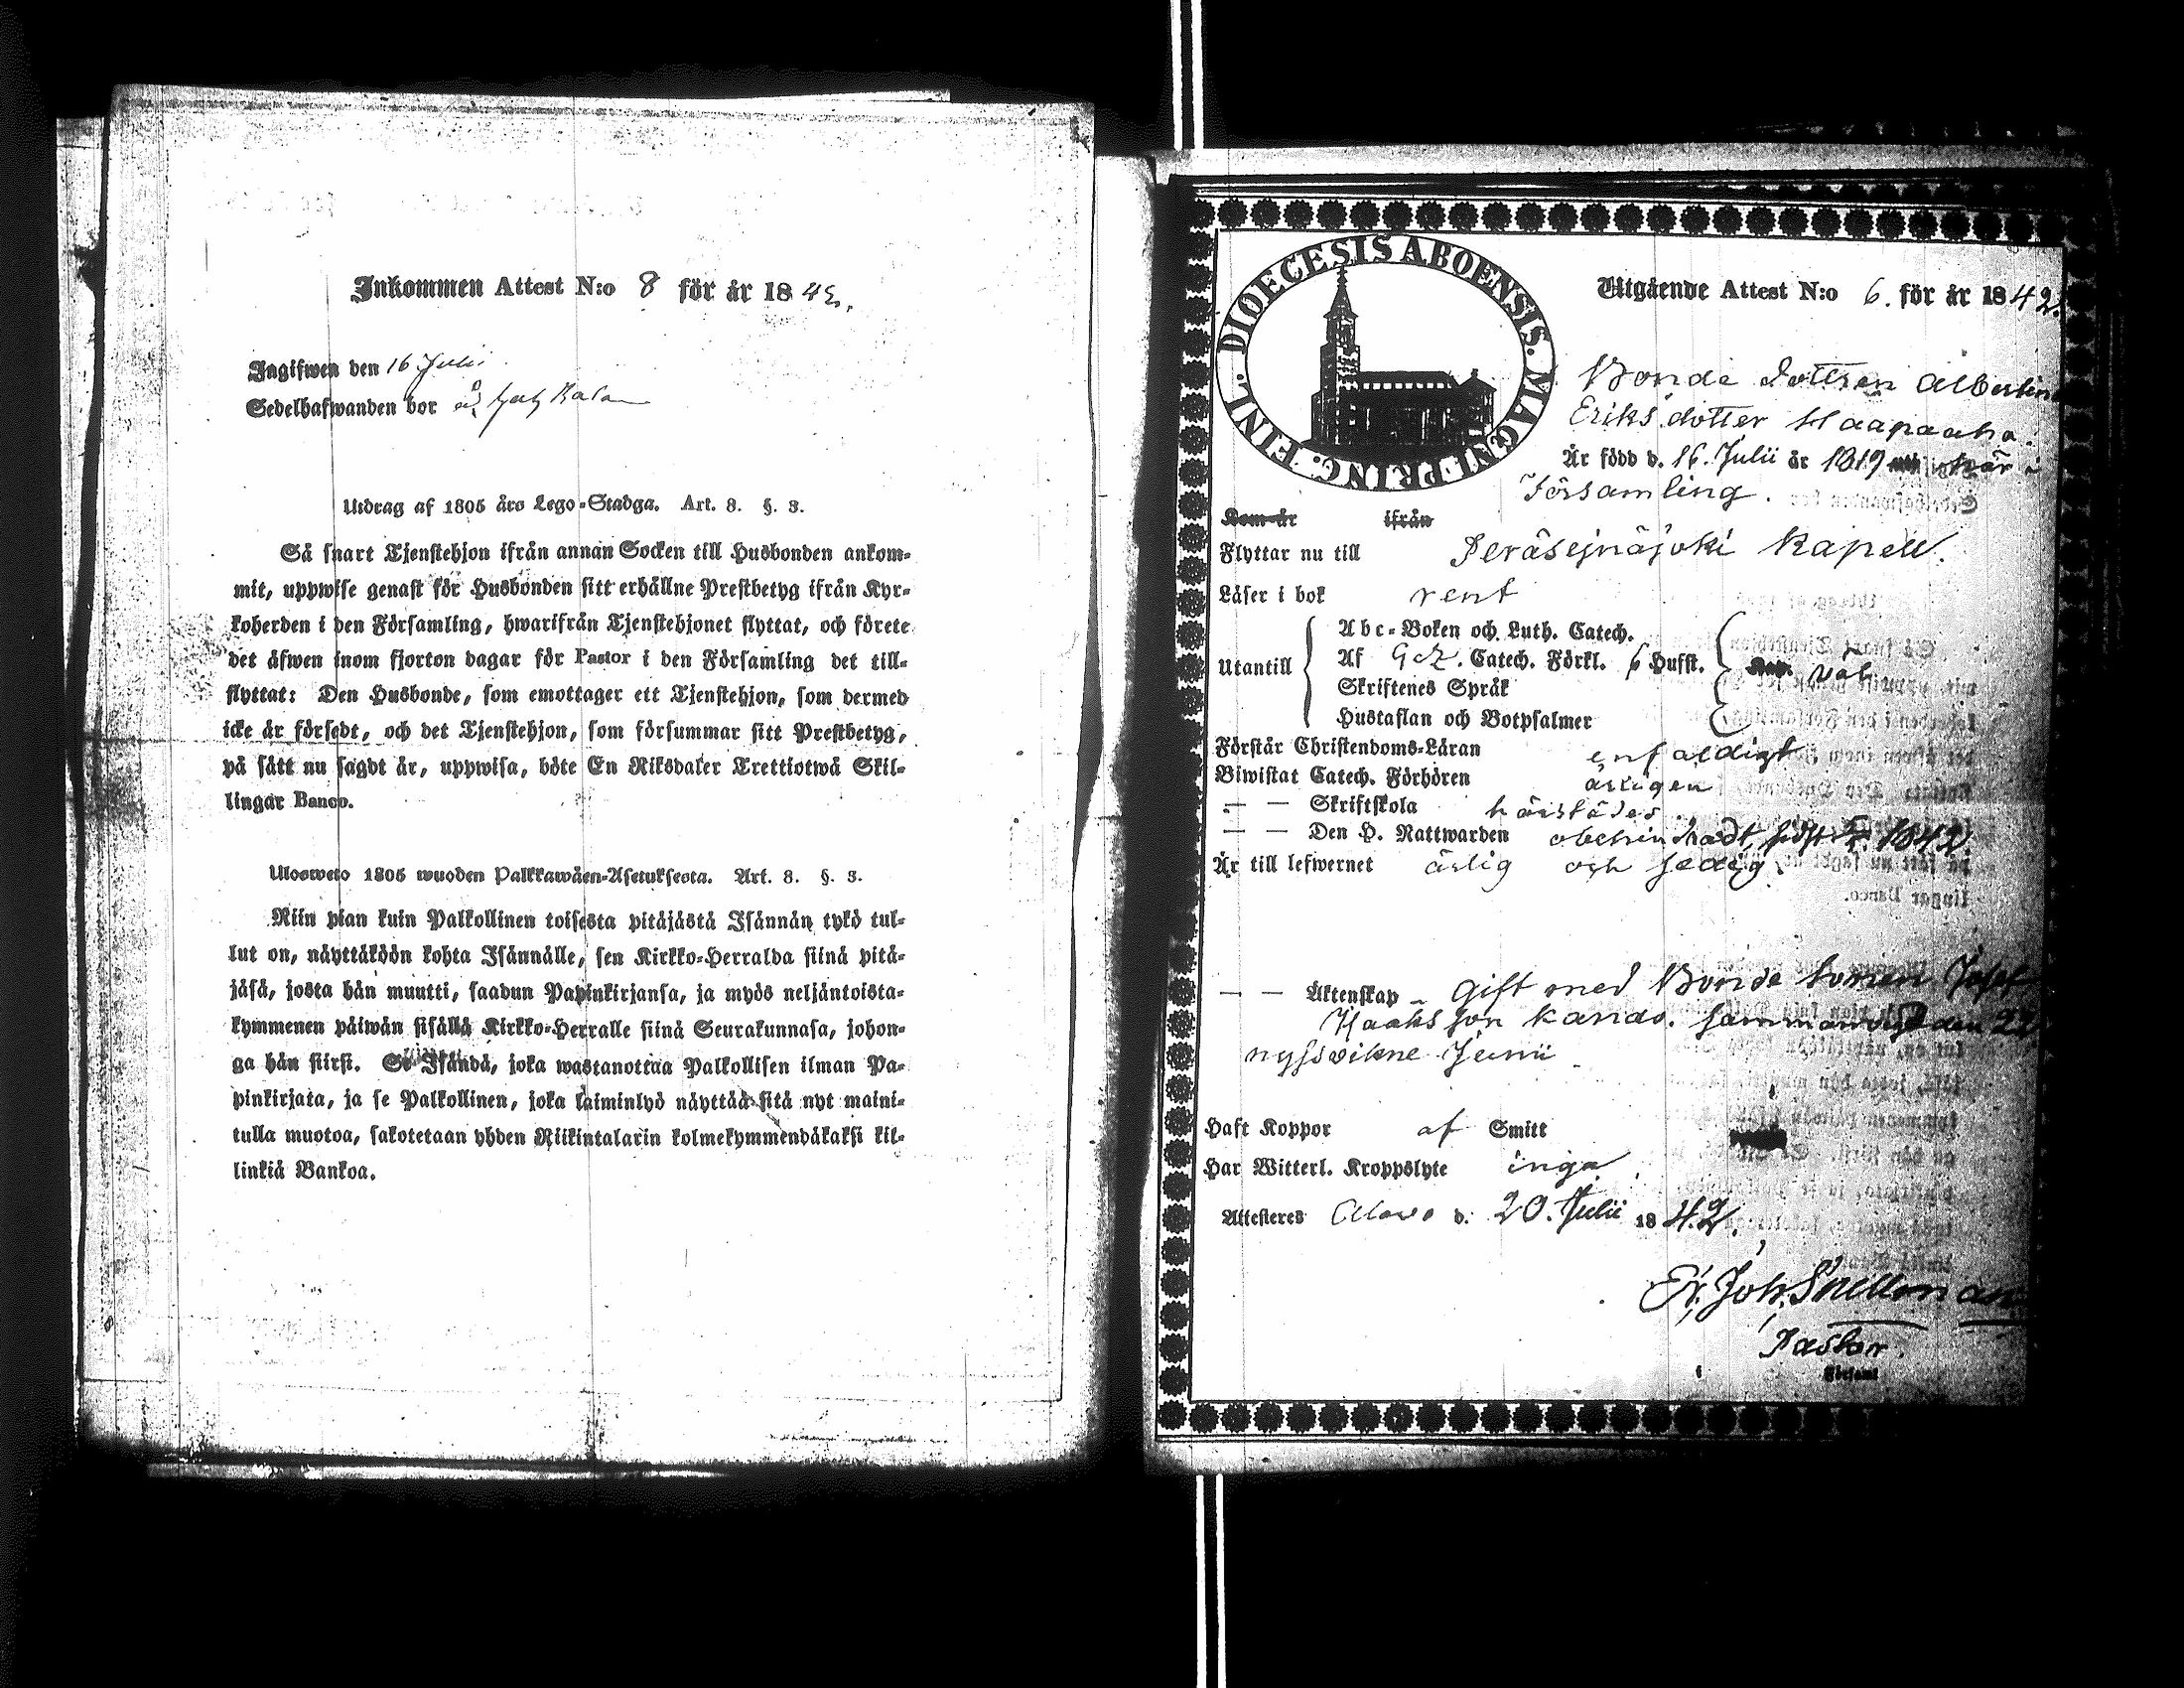 Inkommen Attest N:o 8 för år 18
Ingifwen den 16 Julii
Sedelhafwanden bor
Utdrag af 1805 års Lego-Stadga. Art. 8. §. 3.
Så snart Tjenstehjon ifrån annan Socken till Husbonden ankom-
mit, uppwise genast för Husbonden sitt erhållne Prestbetyg ifrån Kyr-
koherden i den Församling, hwarifrån Tjenstehjonet flyttat, och förete
det äfwen inom fjorton dagar för Pastor i den Församling det till-
flyttat: Den Husbonde, som emottager ett Tjenstehjon, som dermed
icke är försedt, och det Tjenstehjon, som försummar sitt Prestbetyg,
på sätt nu sagdt är, uppwisa, böte En Riksdaler Trettiotwå Skil-
lingar Banco.
Ulosweto 1805 wuoden Palkkawäen-Asetuksesta. Art. 8. §. 3.
Niin pian kuin Palkollinen toisesta pitäjästä Isännän tykö tul-
lut on, näyttäköön kohta Isännälle, sen Kirkko-Herralda siinä pitä-
jäsä, josta hän muutti, saadun Papinkirjansa, ja myös neljäntoista-
kymmenen päiwän sisällä Kirkko-Herralle siinä Seurakunnasa, johon-
ga hän siirsi. Se Isändä, joka wastanottaa Palkollisen ilman Pa-
pinkirjata, ja se Palkollinen, joka laiminlyö näyttää sitä nyt maini-
tulla muotoa, sakotetaan yhden Riikintalarin kolmekymmendäkaksi kil-
linkiä Bankoa.
DIOECESIS ABOENSIS. MAGNI PRINC. FINL.
Utgående Attest N:o 6. för år 1842.
Bonde dottren Albertin
Eriks dotter Haapaaho.
Är född d. 16. Julii år 1819 här i
Församling.
Kom år ifrån
Flyttar nu till Peräsejnäjoki Kapell.
Läser i bok rent
Utantill
Abc-Boken och Luth. Catech.
Af Catech. Förkl. 6 Hufst.
Skriftenes Språk
Hustaflan och Botpsalmer
väl
Förstår Christendoms-Läran enfaldigt
Biwistat Catech. Förhören årligen
— — Skriftskola härstädes
— — Den H. Nattwarden obehindradt, sist 1842.
Är till lefwernet ärlig och sedig.
— — Äktenskap – Gift med Bonde Sonen Josef
Isaaks son Kando. den 22
Junii
Haft Koppor af Smitt
Har Witterl. Kroppslyte inga
Attesteres Alavo d. 20. Julii 1842.
Er. Joh. Snellman
Pastor.
i Församl